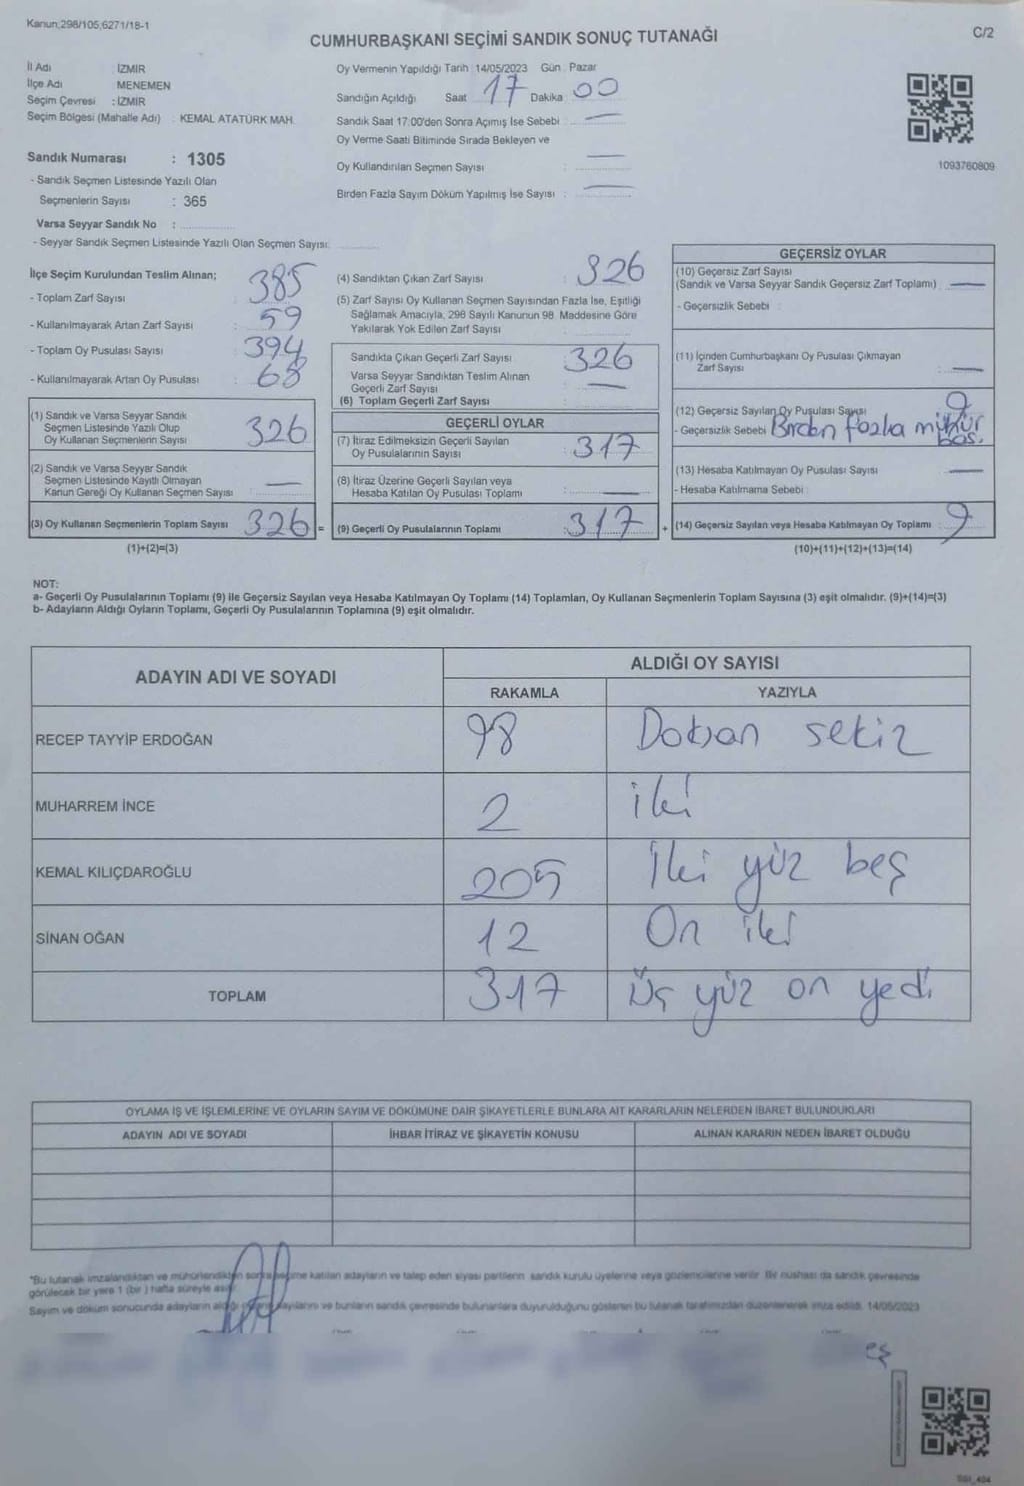 Kanun;298/105,6271/18-1
CUMHURBAŞKANI SEÇİMİ SANDIK SONUÇ TUTANAĞI
C/2
İl Adı : İZMİR
İlçe Adı : MENEMEN
Seçim Çevresi : İZMİR
Seçim Bölgesi (Mahalle Adı) : KEMAL ATATÜRK MAH.
Sandık Numarası : 1305
- Sandık Seçmen Listesinde Yazılı Olan
Seçmenlerin Sayısı : 365
Varsa Seyyar Sandık No :
- Seyyar Sandık Seçmen Listesinde Yazılı Olan Seçmen Sayısı:
Oy Vermenin Yapıldığı Tarih : 14/05/2023 Gün : Pazar
Sandığın Açıldığı Saat 17 Dakika 00
Sandık Saat 17:00'den Sonra Açımış İse Sebebi : —
Oy Verme Saati Bitiminde Sırada Bekleyen ve
Oy Kullandırılan Seçmen Sayısı : —
Birden Fazla Sayım Döküm Yapılmış İse Sayısı : —
1093760809
İlçe Seçim Kurulundan Teslim Alınan;
- Toplam Zarf Sayısı : 385
- Kullanılmayarak Artan Zarf Sayısı : 59
- Toplam Oy Pusulası Sayısı : 394
- Kullanılmayarak Artan Oy Pusulası : 68
(1) Sandık ve Varsa Seyyar Sandık
Seçmen Listesinde Yazılı Olup
Oy Kullanan Seçmenlerin Sayısı : 326
(2) Sandık ve Varsa Seyyar Sandık
Seçmen Listesinde Kayıtlı Olmayan
Kanun Gereği Oy Kullanan Seçmen Sayısı : —
(3) Oy Kullanan Seçmenlerin Toplam Sayısı : 326 =
(1)+(2)=(3)
(4) Sandıktan Çıkan Zarf Sayısı : 326
(5) Zarf Sayısı Oy Kullanan Seçmen Sayısından Fazla İse, Eşitliği
Sağlamak Amacıyla, 298 Sayılı Kanunun 98. Maddesine Göre
Yakılarak Yok Edilen Zarf Sayısı :
Sandıkta Çıkan Geçerli Zarf Sayısı : 326
Varsa Seyyar Sandıktan Teslim Alınan
Geçerli Zarf Sayısı : —
(6) Toplam Geçerli Zarf Sayısı :
GEÇERLİ OYLAR
(7) İtiraz Edilmeksizin Geçerli Sayılan
Oy Pusulalarının Sayısı : 317
(8) İtiraz Üzerine Geçerli Sayılan veya
Hesaba Katılan Oy Pusulası Toplamı : —
(9) Geçerli Oy Pusulalarının Toplamı : 317 +
GEÇERSİZ OYLAR
(10) Geçersiz Zarf Sayısı
(Sandık ve Varsa Seyyar Sandık Geçersiz Zarf Toplamı) : —
- Geçersizlik Sebebi :
(11) İçinden Cumhurbaşkanı Oy Pusulası Çıkmayan
Zarf Sayısı : —
(12) Geçersiz Sayılan Oy Pusulası Sayısı 9
- Geçersizlik Sebebi : Birden fazla mühür
bas.
(13) Hesaba Katılmayan Oy Pusulası Sayısı : —
- Hesaba Katılmama Sebebi :
(14) Geçersiz Sayılan veya Hesaba Katılmayan Oy Toplamı : 9
(10)+(11)+(12)+(13)=(14)
NOT:
a- Geçerli Oy Pusulalarının Toplamı (9) ile Geçersiz Sayılan veya Hesaba Katılmayan Oy Toplamı (14) Toplamları, Oy Kullanan Seçmenlerin Toplam Sayısına (3) eşit olmalıdır. (9)+(14)=(3)
b- Adayların Aldığı Oyların Toplamı, Geçerli Oy Pusulalarının Toplamına (9) eşit olmalıdır.
ADAYIN ADI VE SOYADI
ALDIĞI OY SAYISI
RAKAMLA YAZIYLA
RECEP TAYYİP ERDOĞAN 98 Doksan sekiz
MUHARREM İNCE 2 iki
KEMAL KILIÇDAROĞLU 205 İki yüz beş
SİNAN OĞAN 12 On iki
TOPLAM 317 Üç yüz on yedi
OYLAMA İŞ VE İŞLEMLERİNE VE OYLARIN SAYIM VE DÖKÜMÜNE DAİR ŞİKAYETLERLE BUNLARA AİT KARARLARIN NELERDEN İBARET BULUNDUKLARI
ADAYIN ADI VE SOYADI İHBAR İTİRAZ VE ŞİKAYETİN KONUSU ALINAN KARARIN NEDEN İBARET OLDUĞU
*Bu tutanak imzalandıktan ve mühürlendikten sonra seçime katılan adayların ve talep eden siyasi partilerin sandık kurulu üyelerine veya gözlemcilerine verilir. Bir nüshası da sandık çevresinde
görülecek bir yere 1 (bir) hafta süreyle asılır.
Sayım ve döküm sonucunda adayların aldığı sayılarını ve bunların sandık çevresinde bulunanlara duyurulduğunu gösteren bu tutanak tarafımızdan düzenlenerek imza edildi. 14/05/2023